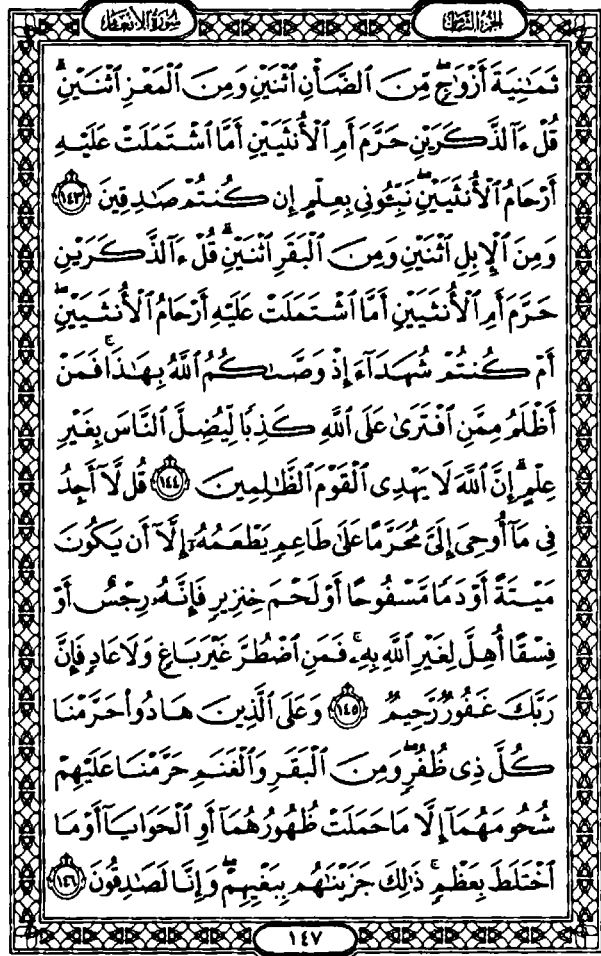 سُورَةُ الأَنعَام
الجُزءُ الثَّامِنُ
ثَمَٰنِيَةَ أَزۡوَٰجٖۖ مِّنَ ٱلضَّأۡنِ ٱثۡنَيۡنِ وَمِنَ ٱلۡمَعۡزِ ٱثۡنَيۡنِۗ
قُلۡ ءَآلذَّكَرَيۡنِ حَرَّمَ أَمِ ٱلۡأُنثَيَيۡنِ أَمَّا ٱشۡتَمَلَتۡ عَلَيۡهِ
أَرۡحَامُ ٱلۡأُنثَيَيۡنِۖ نَبِّـُٔونِي بِعِلۡمٍ إِن كُنتُمۡ صَٰدِقِينَ ١٤٣
وَمِنَ ٱلۡإِبِلِ ٱثۡنَيۡنِ وَمِنَ ٱلۡبَقَرِ ٱثۡنَيۡنِۗ قُلۡ ءَآلذَّكَرَيۡنِ
حَرَّمَ أَمِ ٱلۡأُنثَيَيۡنِ أَمَّا ٱشۡتَمَلَتۡ عَلَيۡهِ أَرۡحَامُ ٱلۡأُنثَيَيۡنِۖ
أَمۡ كُنتُمۡ شُهَدَآءَ إِذۡ وَصَّىٰكُمُ ٱللَّهُ بِهَٰذَاۚ فَمَنۡ
أَظۡلَمُ مِمَّنِ ٱفۡتَرَىٰ عَلَى ٱللَّهِ كَذِبٗا لِّيُضِلَّ ٱلنَّاسَ بِغَيۡرِ
عِلۡمٍۚ إِنَّ ٱللَّهَ لَا يَهۡدِي ٱلۡقَوۡمَ ٱلظَّٰلِمِينَ ١٤٤ قُل لَّآ أَجِدُ
فِي مَآ أُوحِيَ إِلَيَّ مُحَرَّمًا عَلَىٰ طَاعِمٖ يَطۡعَمُهُۥٓ إِلَّآ أَن يَكُونَ
مَيۡتَةً أَوۡ دَمٗا مَّسۡفُوحًا أَوۡ لَحۡمَ خِنزِيرٖ فَإِنَّهُۥ رِجۡسٌ أَوۡ
فِسۡقًا أُهِلَّ لِغَيۡرِ ٱللَّهِ بِهِۦۚ فَمَنِ ٱضۡطُرَّ غَيۡرَ بَاغٖ وَلَا عَادٖ فَإِنَّ
رَبَّكَ غَفُورٞ رَّحِيمٞ ١٤٥ وَعَلَى ٱلَّذِينَ هَادُواْ حَرَّمۡنَا
كُلَّ ذِي ظُفُرٖۖ وَمِنَ ٱلۡبَقَرِ وَٱلۡغَنَمِ حَرَّمۡنَا عَلَيۡهِمۡ
شُحُومَهُمَآ إِلَّا مَا حَمَلَتۡ ظُهُورُهُمَآ أَوِ ٱلۡحَوَايَآ أَوۡ مَا
ٱخۡتَلَطَ بِعَظۡمٖۚ ذَٰلِكَ جَزَيۡنَٰهُم بِبَغۡيِهِمۡۖ وَإِنَّا لَصَٰدِقُونَ ١٤٦
١٤٧